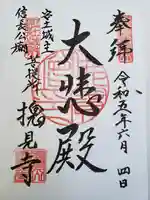 奉拝
令和五年六月四日
大悲殿
安土城主
信長公廟
菩提所
摠見寺